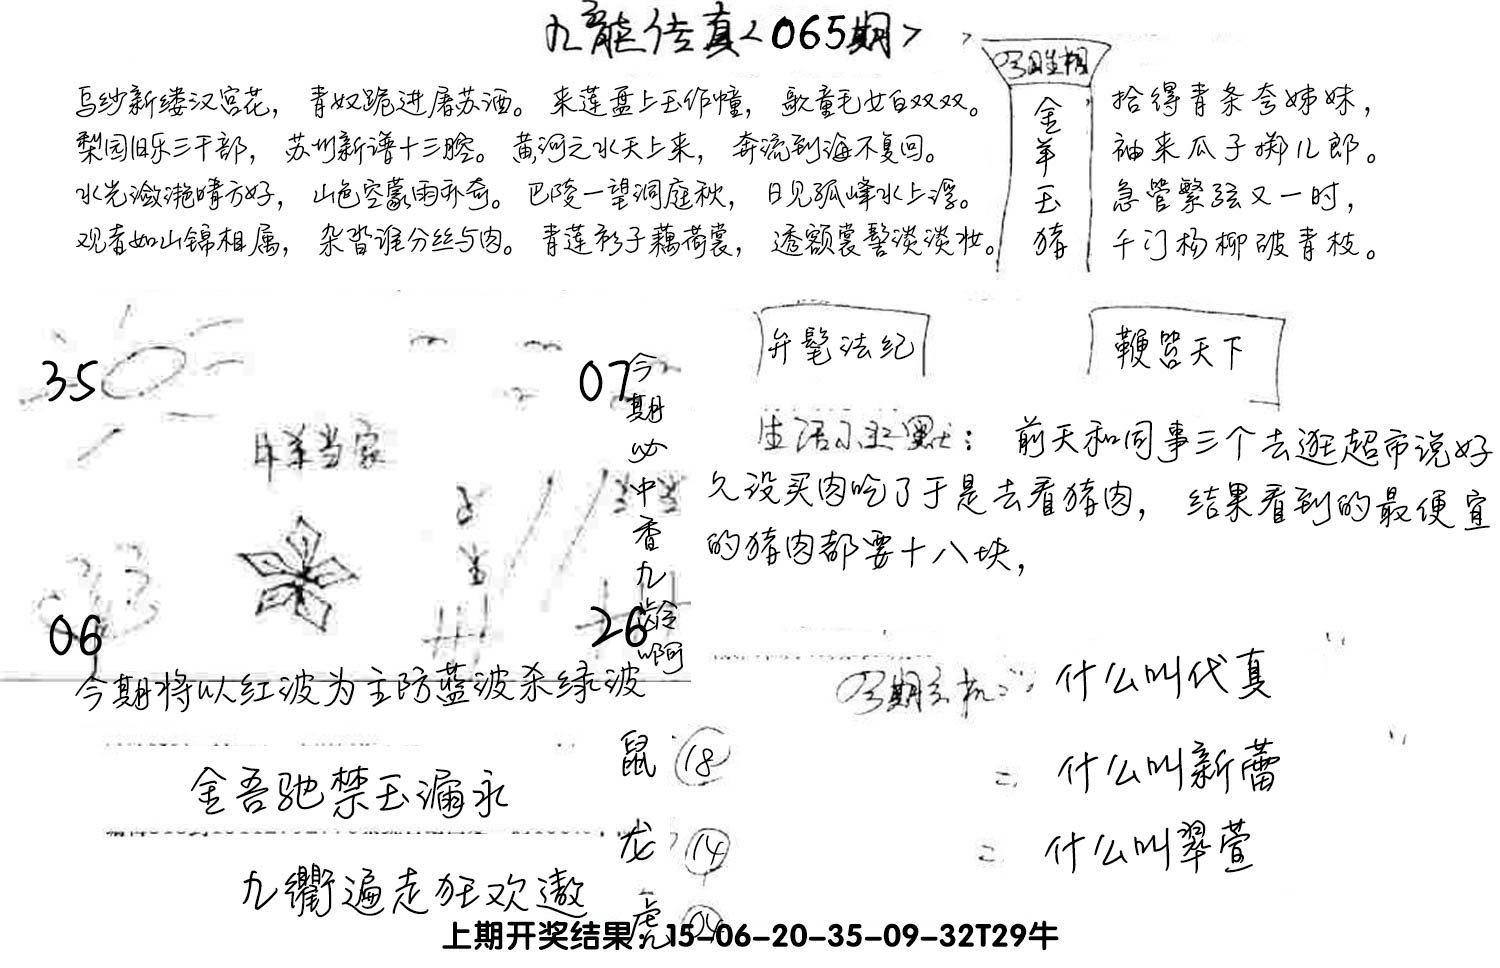 九龍传真<065期>
今期生相
金羊玉猪
乌纱新缕汉宫花，青奴跪进屠苏酒。来莲盘上玉作幢，歌童毛女白双双。
梨园旧乐三千部，苏州新谱十三腔。黄河之水天上来，奔流到海不复回。
水光潋滟晴方好，山色空蒙雨亦奇。巴陵一望洞庭秋，日见孤峰水上浮。
观者如山锦相属，杂沓谁分丝与肉。青莲衫子藕荷裳，透额裳髻淡淡妆。
拾得青条夸姊妹，
袖来瓜子掷儿郎。
急管繁弦又一时，
千门杨柳破青枝。
35
07
今期必中香九龄啊
羊当家
06
26
今期将以红波为主防蓝波杀绿波
弁髦法纪
鞭笞天下
生活小幽默：前天和同事三个去逛超市说好
久没买肉吃了于是去看猪肉，结果看到的最便宜
的猪肉都要十八块，
今期玄机：什么叫代真
= 什么叫新蕾
= 什么叫翠萱
鼠 18
龙 14
虎 04
金吾驰禁玉漏永
九衢遍走狂欢遨
上期开奖结果：15-06-20-35-09-32T29牛